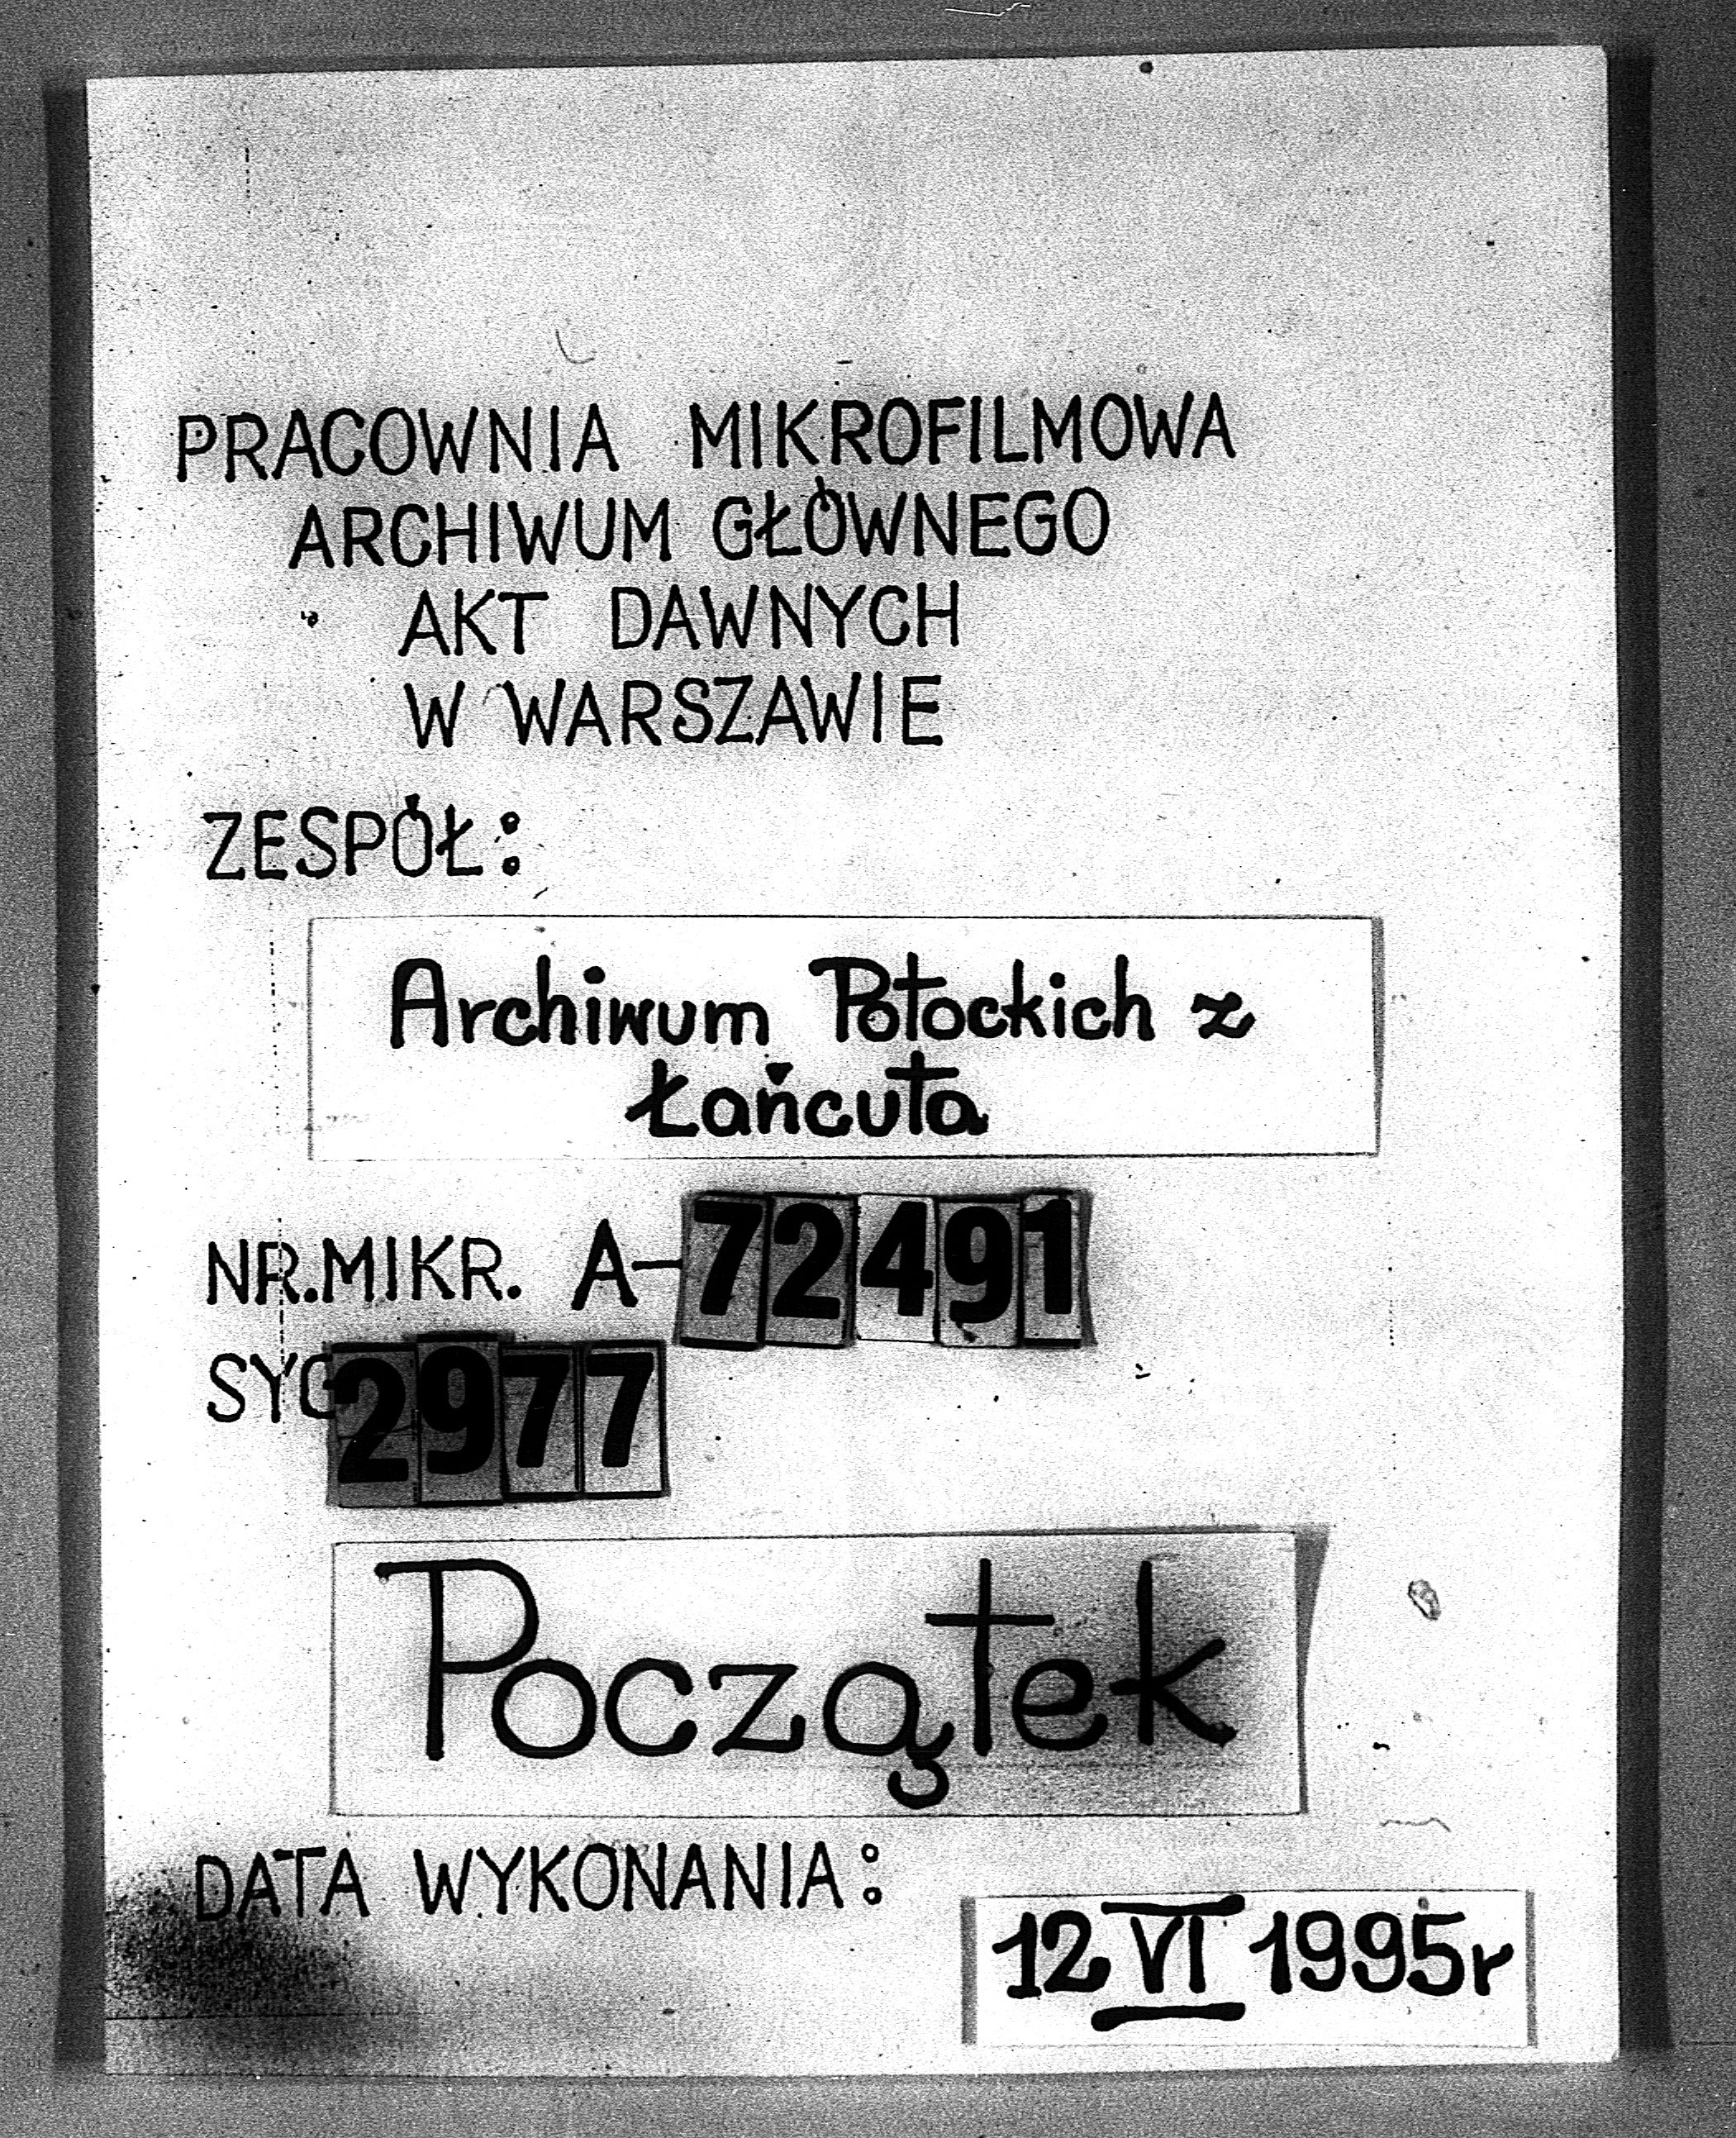 PRACOWNIA MIKROFILMOWA
ARCHIWUM GŁÓWNEGO
AKT DAWNYCH
W WARSZAWIE
ZESPÓŁ:
Archiwum Potockich z
Łańcuta
NR.MIKR. A-72491
SYG 2977
Początek
DATA WYKONANIA:
12 VI 1995r